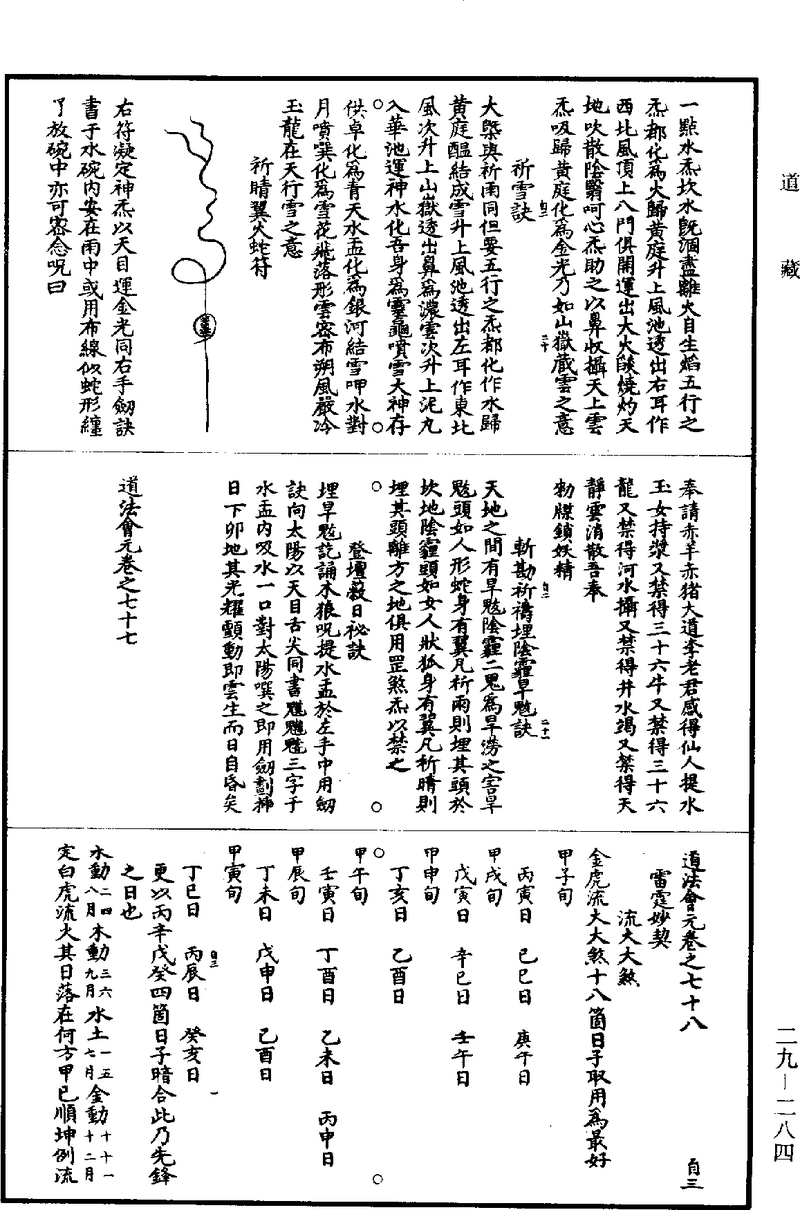 道藏
一點水炁坎水既涸盡離火自生焰五行之
炁都化為火歸黃庭升上風池透出右耳作
西北風頂上八門俱開運出大火燄燒灼天
地吹散陰翳呵心炁助之以鼻收攝天上雲
炁吸歸黃庭化為金光乃如山嶽藏雲之意
祈雪訣
大槩與祈雨同但要五行之炁都化作水歸
黃庭醞結成雪升上風池透出左耳作東北
風次升上山嶽透出鼻為濃雲次升上泥丸
入華池運神水化吾身為靈龜噴雪大神存
供卓化為青天水盂化為銀河結雪呷水對
月噴噀化為雪花飛落形雲密布朔風嚴冷
玉龍在天行雪之意
祈晴翼火蛇符
右符凝定神炁以天目運金光同右手劒訣
書于水碗內安在雨中或用布線似蛇形纏
了放碗中亦可密念呪曰
奉請赤羊赤猪大道李老君感得仙人提水
玉女持漿又禁得三十六牛又禁得三十六
龍又禁得河水攝又禁得井水竭又禁得天
靜雲消散吾奉
勑牒鎖妖精
斬勘祈禱埋陰霾旱魃訣
天地之間有旱魃陰霾二鬼為旱澇之害旱
魃頭如人形蛇身有翼凡祈雨則埋其頭於
坎地陰霾頭如女人狀狐身有翼凡祈晴則
埋其頭離方之地俱用罡煞炁以禁之
登壇蔽日祕訣
埋旱魃訖誦木狼呪提水盂於左手中用劒
訣向太陽以天目舌尖同書三字于
水盂內吸水一口對太陽噀之即用劒劃捧
日下卯地其光耀顫動即雲生而日自昏矣
道法會元卷之七十七
道法會元卷之七十八 自三
雷霆妙契
流火大煞
金虎流火大煞十八箇日子取用為最好
甲子旬
丙寅日 己巳日 庚午日
甲戌旬
戊寅日 辛巳日 壬午日
甲申旬
丁亥日 乙酉日
甲午旬
壬寅日 丁酉日 乙未日 丙申日
甲辰旬
丁未日 戊申日 己酉日
甲寅旬
丁巳日 丙辰日 癸亥日
更以丙辛戊癸四箇日子暗合此乃先鋒
之日也
水動二四八月木動三六九月水土一五七月金動十十一十二月
定白虎流火其日落在何方甲巳順坤例流
二九—二八四